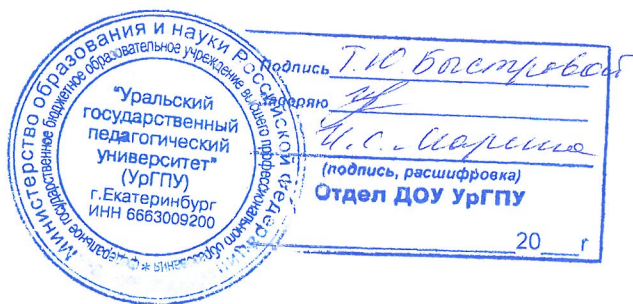 Министерство образования и науки Российской Федерации
Федеральное государственное бюджетное образовательное учреждение высшего профессионального образования *
"Уральский
государственный
педагогический
университет"
(УрГПУ)
г.Екатеринбург
ИНН 6663009200
Подпись Т.Ю. Быстровой
Заверяю
И.С.
(подпись, расшифровка)
Отдел ДОУ УрГПУ
20 г